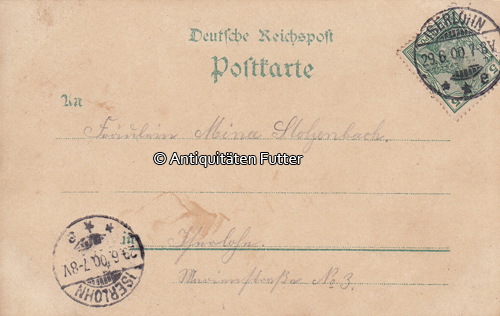 Deutsche Reichspost
Postkarte
ISERLOHN
29.6.00.7-8V
An
Fräulein Mina Stohenbach.
© Antiquitäten Futter
in Iserlohn.
29.6.00.7-8V
ISERLOHN
Marienstraße No 3.